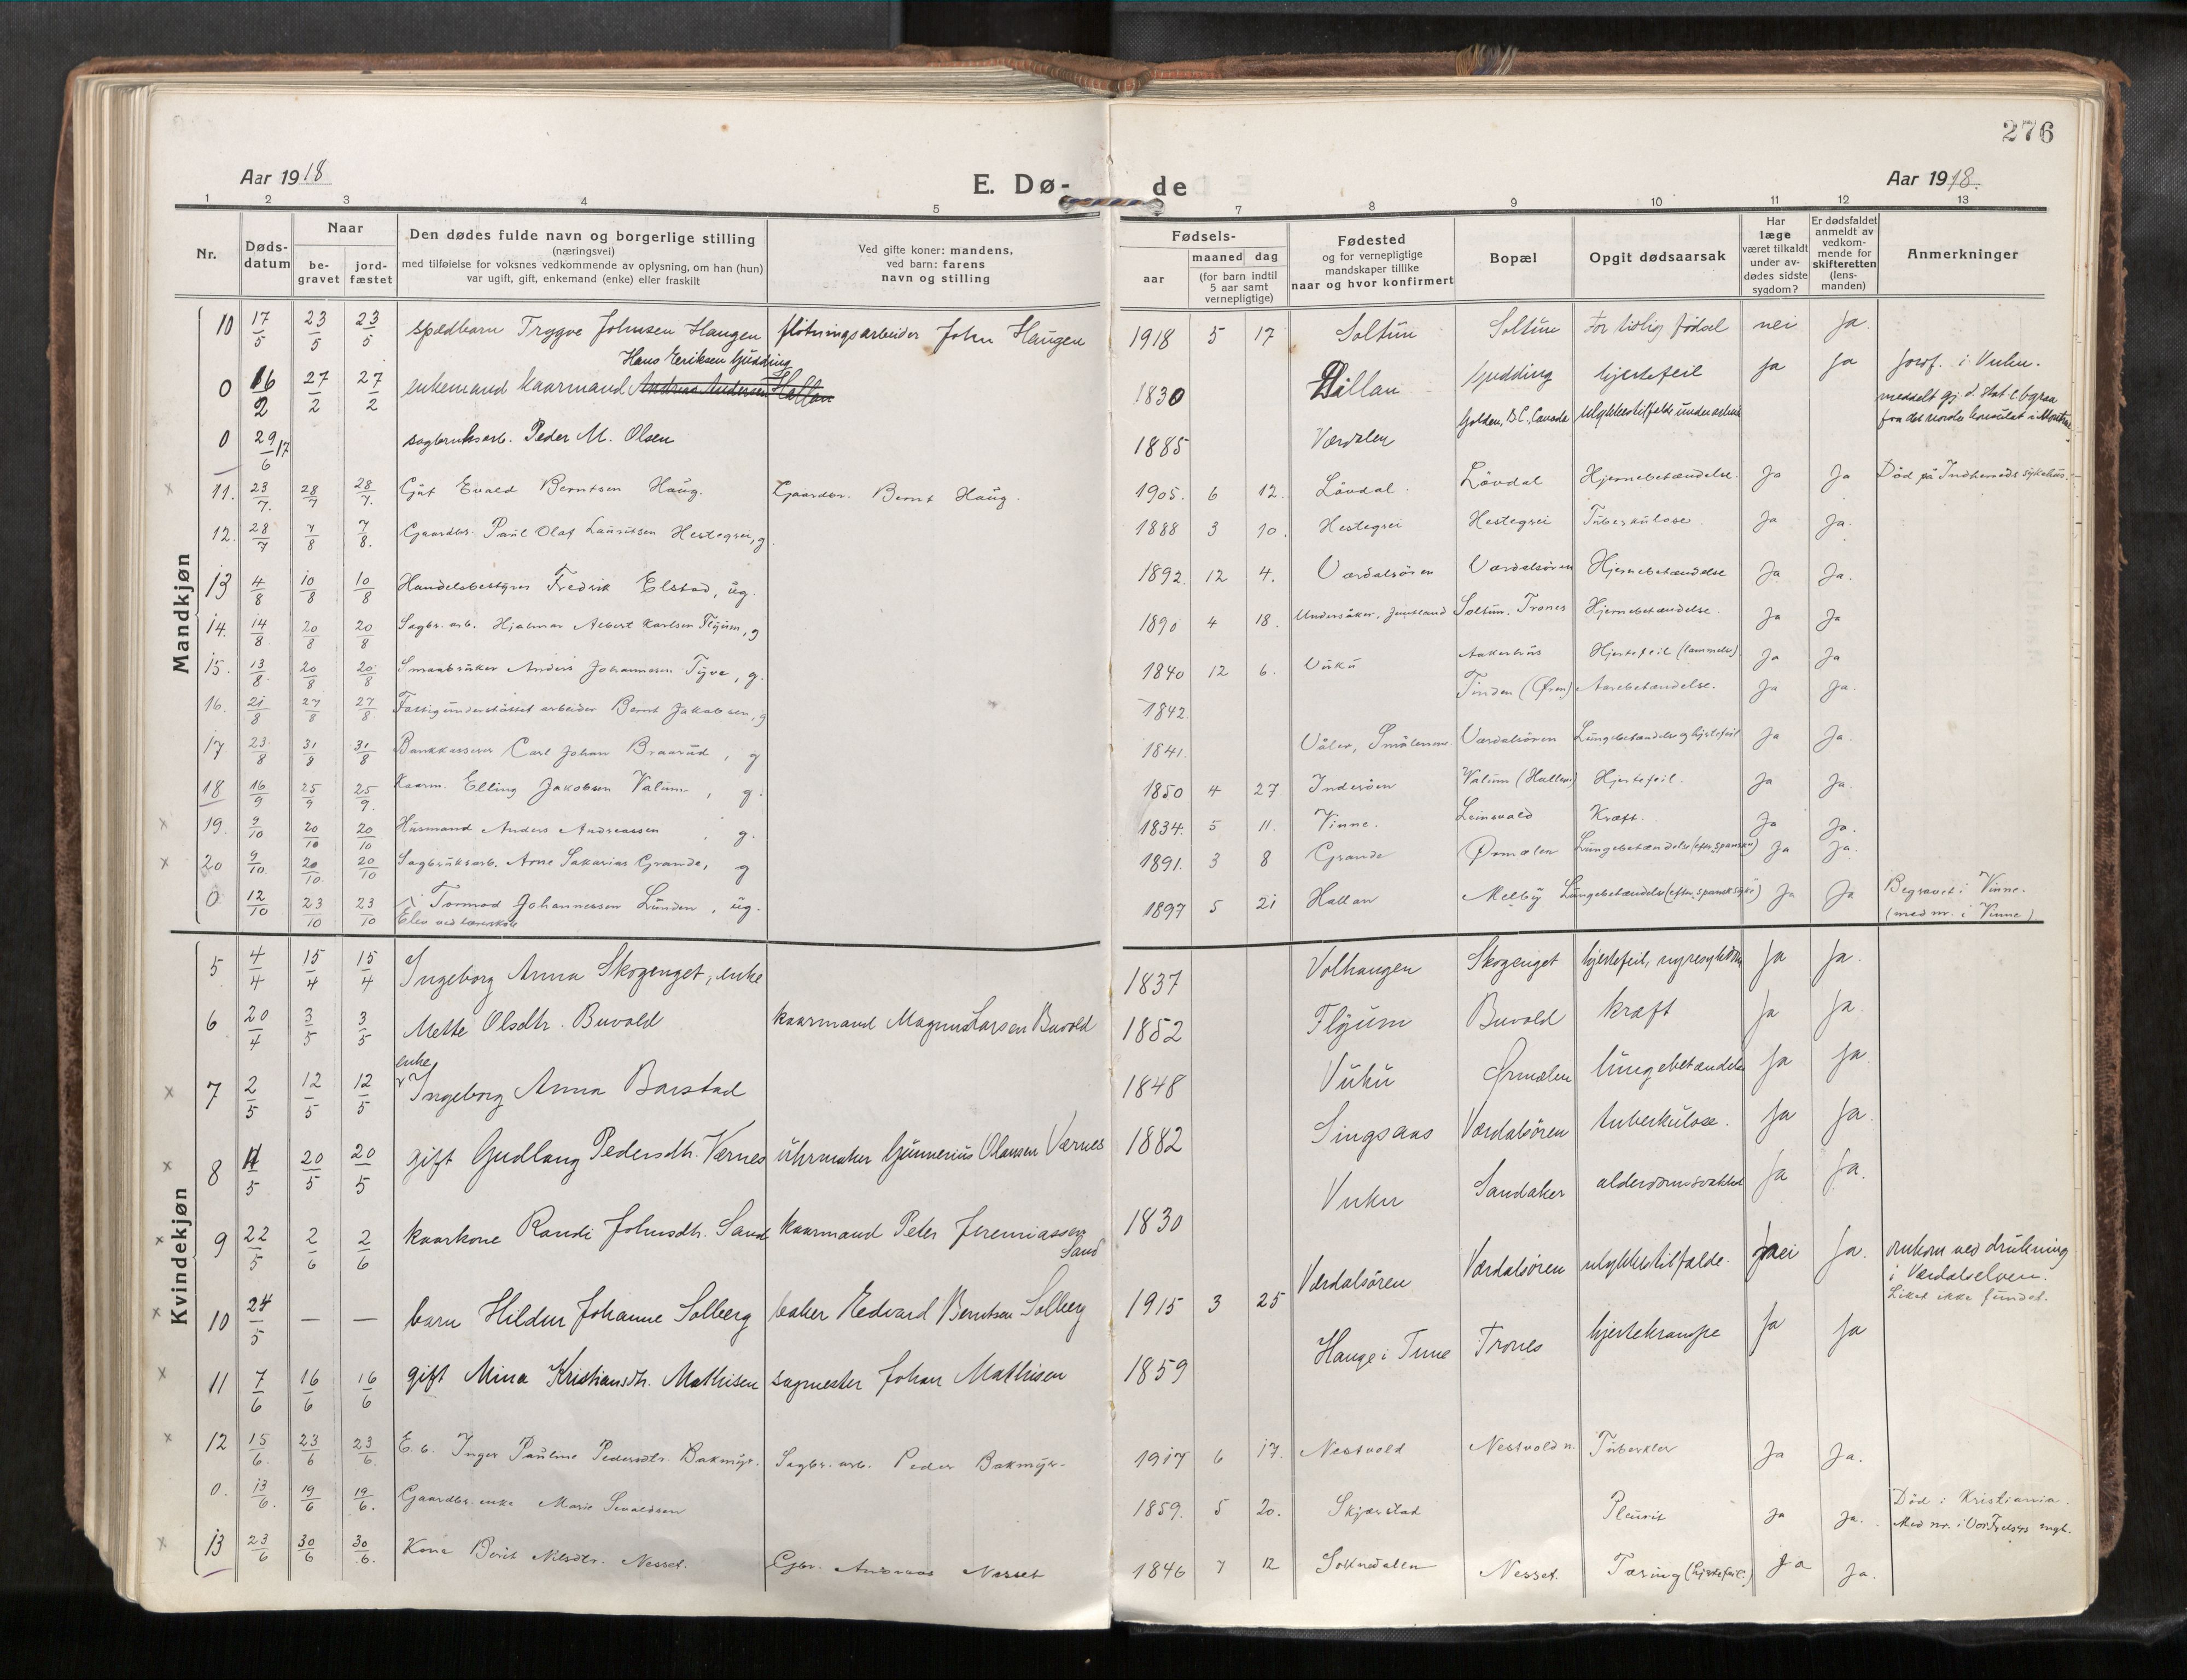 276
Aar 1918
E. Dø-
de
Aar 1918.
1 2 3 4 5 7 8 9 10 11 12 13
Nr.
Døds-
datum
Naar
be-
gravet
jord-
fæstet
Den dødes fulde navn og borgerlige stilling
(næringsvei)
med tilføielse for voksnes vedkommende av oplysning, om han (hun)
var ugift, gift, enkemand (enke) eller fraskilt
Ved gifte koner: mandens,
ved barn: farens
navn og stilling
Fødsels-
aar
maaned dag
(for barn indtil
5 aar samt
vernepligtige)
Fødested
og for vernepligtige
mandskaper tillike
naar og hvor konfirmert
Bopæl
Opgit dødsaarsak
Har
læge
været tilkaldt
under av-
dødes sidste
sygdom?
Er dødsfaldet
anmeldt av
vedkom-
mende for
skifteretten
(lens-
manden)
Anmerkninger
Mandkjøn
10 17/5 23/5 23/5 spædbarn Trygve Johnsen Haugen fløtningsarbeider John Haugen 1918 5 17 Soltün Soltün For tidlig fødsel nei ja
Hans Eriksen Gudding
0 16/2 27/2 27/2 enkemand kaarmand Andreas Andersen Hallan 1830 Gudding hjertefeil ja ja i Vuku.
0 29/6 17 sagbruksarb. Peder M. Olsen 1885 Værdalen Golden, B.C., Canada ulykkestilfælde under arbeid meddelt gj. d. stat. c. byraa
fra det norske konsulat i
11. 23/7. 28/7 28/7. Evald Berntsen Haug. Gaardbr. Bernt Haug. 1905. 6 12. Lövdal. Lövdal Hjernebetændelse. Ja Ja Död på Indherreds sykehus.
12. 28/7 7/8 7/8. Gaardbr. Paul Olaf Lauritsen Hestegrei, g. 1888 3 10. Hestegrei Hestegrei Tüberkülose. Ja Ja.
13 4/8 10/8 10/8 Handelsbestyrer Fredrik Elstad, üg. 1892. 12 4. Værdalsören Værdalsören Hjernebetændelse Ja Ja.
14. 14/8 20/8 20/8 Sagbr. arb. Hjalmar Albert Karlsen Flyüm, g 1890 4 18. Undersåker, Jemtland Soltün, Trones Hjernebetændelse. Ja Ja
15. 13/8. 20/8 20/8 Smaabrüker Anders Johannesen Tyve, g. 1840 12 6. Vükü Aakerhüs Hjertefeil (lammelse) Ja Ja
16. 21/8 27/8 27/8 Fattigünderstöttet arbeider Bernt Jakobsen, g 1842. Tinden (Ören) Aarebetændelse. Ja Ja.
17 23/8 31/8 31/8 Bankkasserer Carl Johan Braarüd, g 1841. Våler, Smålenene. Værdalsören Lüngebetændelse og hjertefeil Ja Ja.
18 16/9 25/9 25/9. Kaarm. Elling Jakobsen Valüm, g. 1850 4 27 Inderöen Valüm (Hallem) Hjertefeil. Ja Ja.
19. 9/10 20/10 20/10 Hüsmand Anders Andreassen, g. 1834. 5 11. Vinne. Leinsvald Kræft. Ja Ja.
20 9/10. 20/10. 20/10 Sagbrüksarb. Arne Sakarias Grande, g 1891. 3 8 Grande Ørmælen Lüngebetændelse (efter spansk) Ja Ja.
0 12/10 23/10 23/10 Tormod Johannessen Lünden, üg. 1897 5 21 Hallan Melby Lüngebetændelse (efter spansk syke) Ja Ja Begravet i Vinne.
Elev ved lærerskole (med nr. i Vinne)
Kvindekjøn
5 4/4 15/4 15/4 Ingeborg Anna Skogenget, enke 1837 Volhaugen Skogenget hjertefeil, nyresykdom ja ja.
6 20/4 3/5 3/5 Mette Olsdtr. Buvold kaarmand Magnus Larsen Buvold 1852 Flyum Buvold kræft ja ja.
enke
7 2/5 12/5 12/5 Ingeborg Anna Barstad 1848 Vuku Ørmælen lüngebetændelse ja ja.
8 11/5 20/5 20/5 gift Gudlaug Pedersdtr. Værnes ührmaker Günnerius Olaussen Værnes 1882 Singsaas Værdalsören tuberkulose. ja ja.
9 22/5 2/6 2/6 kaarkone Randi Johnsdtr. Sand kaarmand Peter Jeremiassen Sand 1830 Vuku Sandaker alderdomssvakhet ja ja.
10 24/5 — — barn Hildur Johanne Solberg baker Edvard Berntsen Solberg 1915 3 25 Værdalsören Værdalsören ulykkestilfælde. nei ja. omkom ved drukning
i Værdalselven.
Liket ikke fundet.
11 7/6 16/6 16/6 gift Mina Kristiansdtr. Mathisen sagmester Johan Mathisen 1859 Hauge i Tune Trones hjertekrampe ja ja
12 15/6. 23/6 23/6. E. b. Inger Pauline Pedersdtr. Bakmyr. Sagbr. arb. Peder Bakmyr. 1917 6 17. Nestvold Nestvold n. Tüberkler Ja Ja.
0. 13/6. 19/6 19/6. Gaardbr. enke Marie Sevaldsen 1859. 5 20. Skjærstad Pleürit Ja Ja. Död i Kristiania.
Med nr. i Vor Frelsers mgh.
13 23/6 30/6 30/6. Kone Berit Nilsdtr. Nesset. Gbr. Andreas Nesset 1846 7 12 Soknedalen Nesset. Tæring (hjertefeil) Ja Ja.